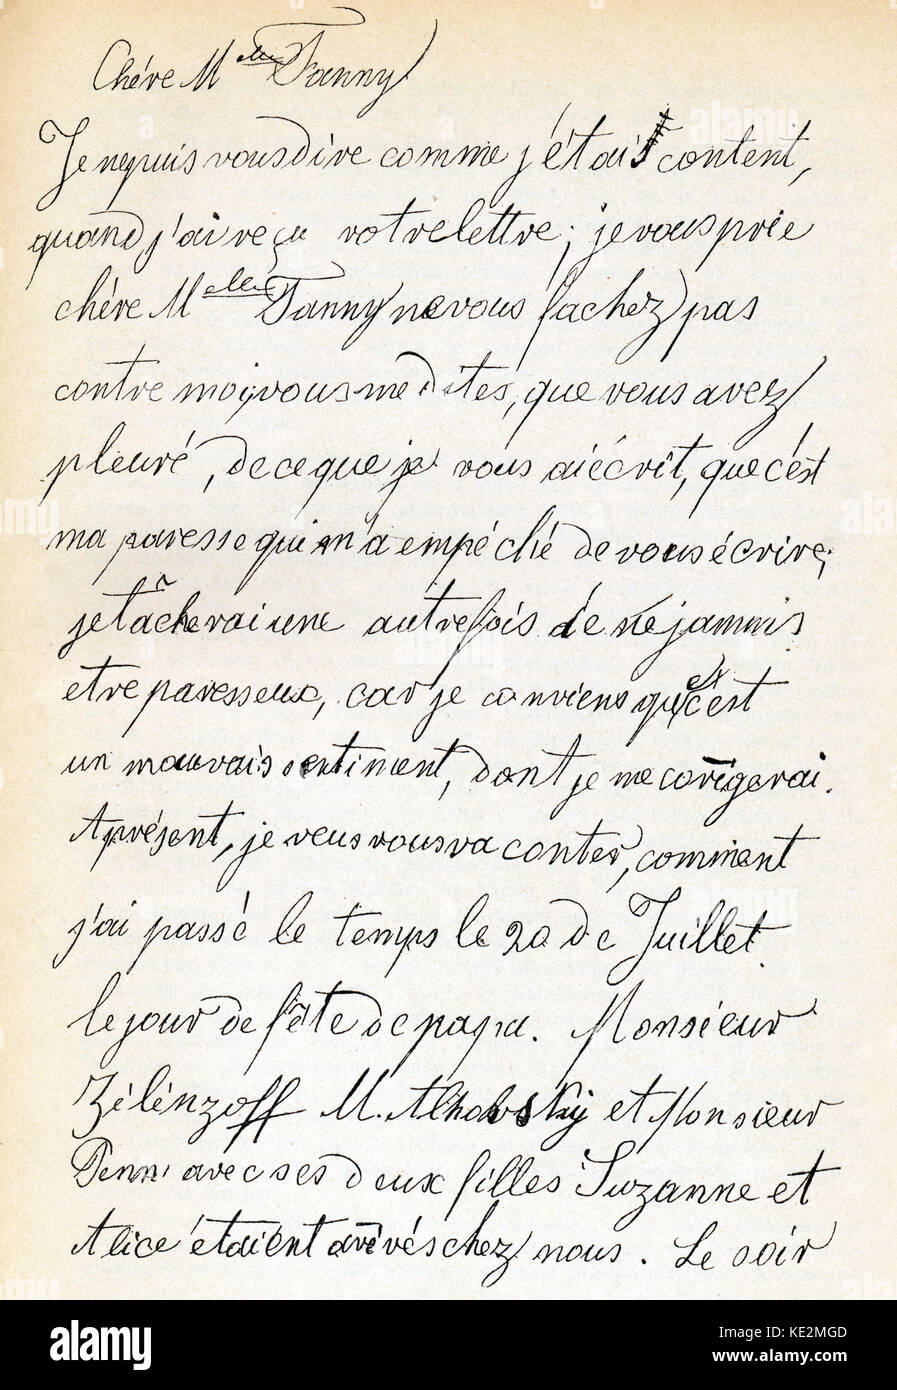 Chére Melle Fanny
Je nepuis vous dire comme j'étais content,
quand j'ai reçu votre lettre; je vous prie
chère Melle Fanny ne vous fachez pas
contre moi, vous me dites, que vous avez
pleuré, de ce que je vous ai écrit, que c'est
ma paresse qui m'a empéché de vous écrire;
je tâcherai une autre fois de ne jammis
etre paresseux, car je conviens que c'est
un mauvais sentiment, dont je me corigerai.
Aprésent, je veus vous va conter, comment
j'ai passé le temps le 20 de Juillet
le jour de fête de papa. Monsieur
Zélénzoff M. et Monsieur
Penn avec ses deux filles Suzanne et
Alice étaient arivés chez nous. Le soir
alamy
Image ID: KE2MGD
www.alamy.com